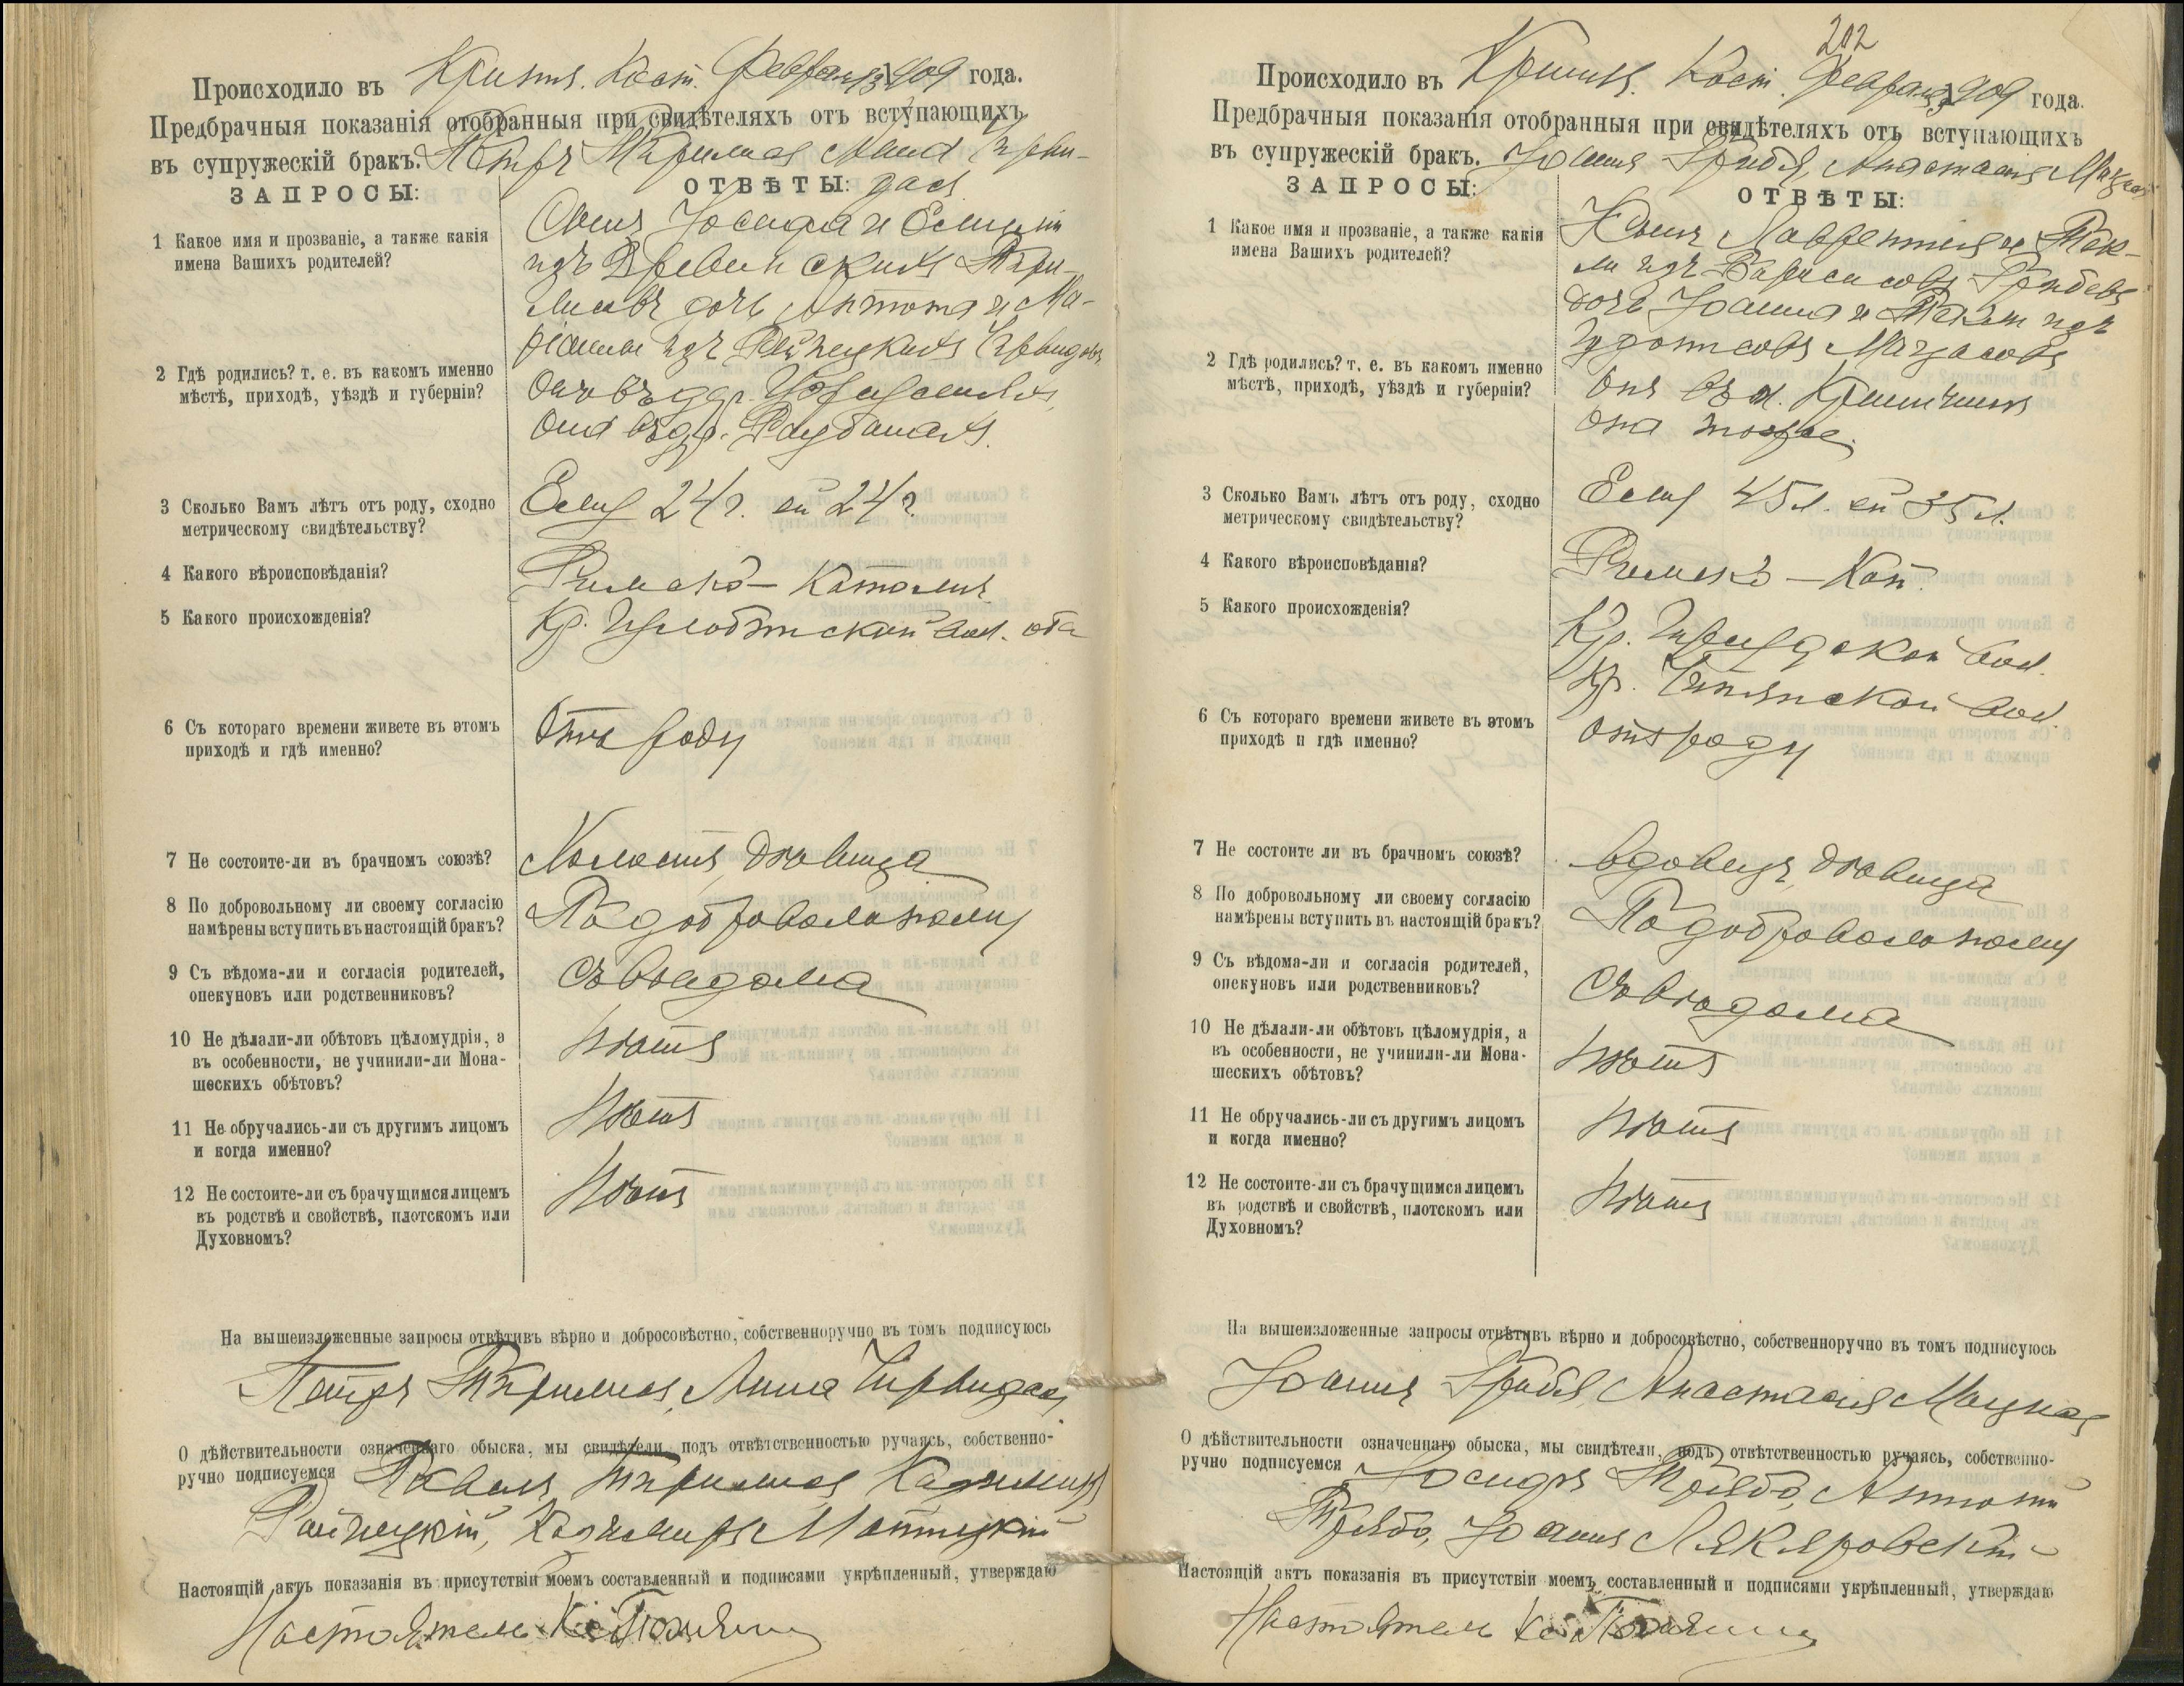 Происходило въ Кринч. Кост. Февраля 1909 года.
Предбрачныя показанія отобранныя при свидѣтеляхъ отъ вступающихъ
въ супружескій бракъ. Петръ Анна
ЗАПРОСЫ: ОТВѢТЫ:
1 Какое имя и прозваніе, а также какія
имена Вашихъ родителей?
Сынъ Іосифа и
изъ
дочь Антона и Ма-
ріанны изъ
2 Гдѣ родились? т. е. въ какомъ именно
мѣстѣ, приходѣ, уѣздѣ и губерніи?
Онъ въ дер.
Она въ др.
3 Сколько Вамъ лѣтъ отъ роду, сходно
метрическому свидѣтельству?
Ему 24 г. ей 24 г.
4 Какого вѣроисповѣданія?
Римско-Католич.
5 Какого происхожденія?
Кр. вол. оба
6 Съ котораго времени живете въ этомъ
приходѣ и гдѣ именно?
Отъ роду
7 Не состоите-ли въ брачномъ союзѣ?
Холостъ, дѣвица
8 По добровольному ли своему согласію
намѣрены вступить въ настоящій бракъ?
По добровольному
9 Съ вѣдома-ли и согласія родителей,
опекуновъ или родственниковъ?
Съ вѣдома
10 Не дѣлали-ли обѣтовъ цѣломудрія, а
въ особенности, не учинили-ли Мона-
шескихъ обѣтовъ?
Нѣтъ
11 Не обручались-ли съ другимъ лицомъ
и когда именно?
Нѣтъ
12 Не состоите-ли съ брачущимся лицемъ
въ родствѣ и свойствѣ, плотскомъ или
Духовномъ?
Нѣтъ
На вышеизложенные запросы отвѣтивъ вѣрно и добросовѣстно, собственноручно въ томъ подписуюсь
Петръ Анна
О дѣйствительности означеннаго обыска, мы свидѣтели подъ отвѣтственностью ручаясь, собственно-
ручно подписуемся Казимиръ
Казимиръ
Настоящій актъ показанія въ присутствіи моемъ составленный и подписями укрѣпленный, утверждаю
Настоятель Кс.
202
Происходило въ Кринч. Кост. Февраля 1909 года.
Предбрачныя показанія отобранныя при свидѣтеляхъ отъ вступающихъ
въ супружескій бракъ. Іоаннъ Анастасія
ЗАПРОСЫ: ОТВѢТЫ:
1 Какое имя и прозваніе, а также какія
имена Вашихъ родителей?
Сынъ Лаврентія и Тек-
ли изъ
дочь Іоанна и Текли изъ
2 Гдѣ родились? т. е. въ какомъ именно
мѣстѣ, приходѣ, уѣздѣ и губерніи?
Онъ въ м. Кринчинѣ
Она тоже.
3 Сколько Вамъ лѣтъ отъ роду, сходно
метрическому свидѣтельству?
Ему 45 л. ей 35 л.
4 Какого вѣроисповѣданія?
Римско-Кат.
5 Какого происхожденія?
Кр. вол.
Кр. вол.
6 Съ котораго времени живете въ этомъ
приходѣ и гдѣ именно?
Отъ роду
7 Не состоите ли въ брачномъ союзѣ?
Вдовецъ, дѣвица
8 По добровольному ли своему согласію
намѣрены вступить въ настоящій бракъ?
По добровольному
9 Съ вѣдома-ли и согласія родителей,
опекуновъ или родственниковъ?
Съ вѣдома
10 Не дѣлали-ли обѣтовъ цѣломудрія, а
въ особенности, не учинили-ли Мона-
шескихъ обѣтовъ?
Нѣтъ
11 Не обручались-ли съ другимъ лицомъ
и когда именно?
Нѣтъ
12 Не состоите-ли съ брачущимся лицемъ
въ родствѣ и свойствѣ, плотскомъ или
Духовномъ?
Нѣтъ
На вышеизложенные запросы отвѣтивъ вѣрно и добросовѣстно, собственноручно въ томъ подписуюсь
Іоаннъ Анастасія
О дѣйствительности означеннаго обыска, мы свидѣтели, подъ отвѣтственностью ручаясь, собственно-
ручно подписуемся Іосифъ Антоній
Іоаннъ
Настоящій актъ показанія въ присутствіи моемъ составленный и подписями укрѣпленный, утверждаю
Настоятель Кс.